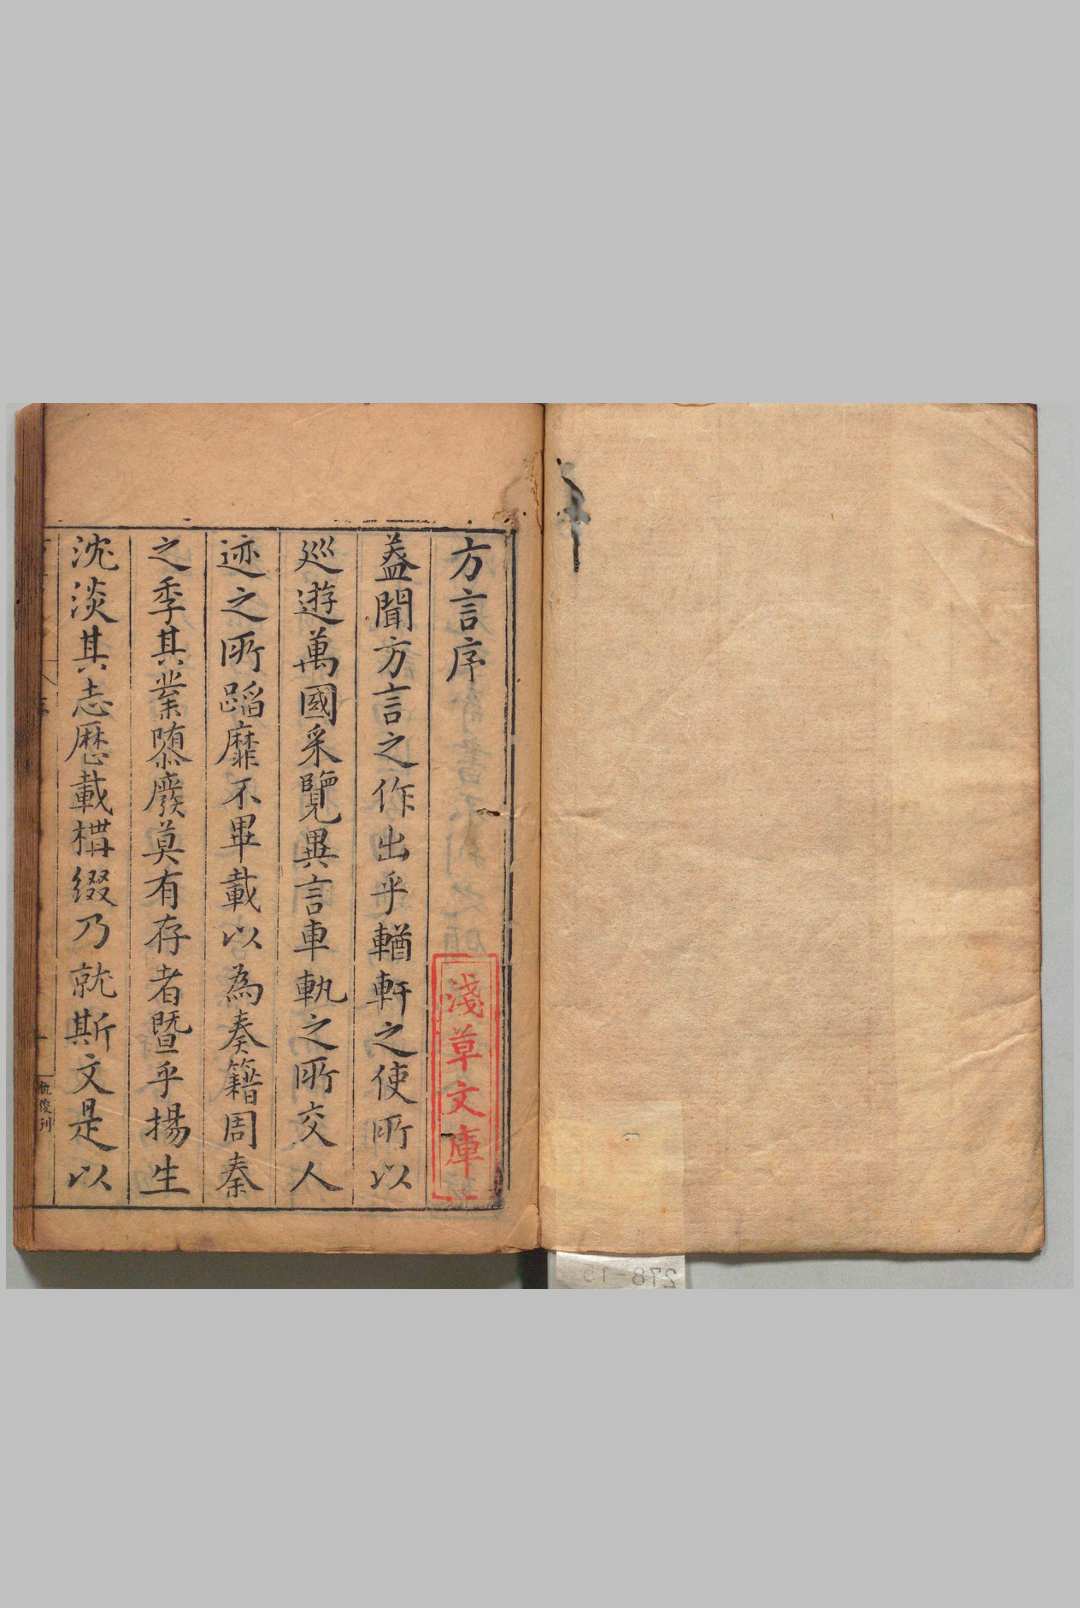 方言序
淺草文庫
葢聞方言之作出乎輶軒之使所以
巡遊萬國采覽異言車軌之所交人
迹之所蹈靡不畢載以為奏籍周秦
之季其業隳廢莫有存者曁乎揚生
沈淡其志歷載構綴乃就斯文是以
278-15